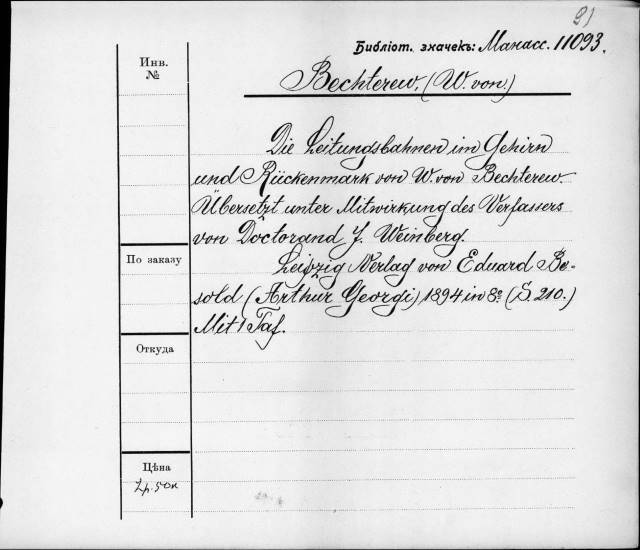 91
Библіот. значекъ: Манасс. 11093.
Инв.
№
Bechterew, (W. von.)
Die Leitungsbahnen im Gehirn
und Rückenmark von W. von Bechterew.
Übersetzt unter Mitwirkung des Verfassers
von Doctorand J. Weinberg.
По заказу
Leipzig Verlag von Eduard Be-
sold (Arthur Georgi) 1894 in 8º (S. 210.)
Mit 1 Taf.
Откуда
Цѣна
2р. 50к